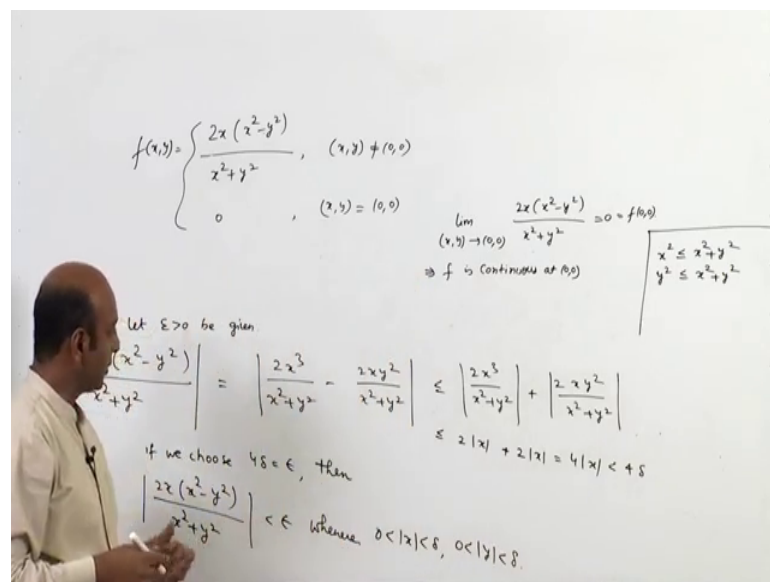 f(x,y) = { 2x(x²-y²) / x²+y² , (x,y) ≠ (0,0)
0 , (x,y) = (0,0)
lim (x,y)→(0,0) 2x(x²-y²) / x²+y² = 0 = f(0,0)
⇒ f is continuous at (0,0)
x² ≤ x²+y²
y² ≤ x²+y²
Let ε>0 be given.
(x²-y²) / x²+y² | = | 2x³ / x²+y² - 2xy² / x²+y² | ≤ | 2x³ / x²+y² | + | 2xy² / x²+y² |
≤ 2|x| + 2|x| = 4|x| < 4δ
If we choose 4δ = ε, then
| 2x(x²-y²) / x²+y² | < ε whenever 0<|x|<δ, 0<|y|<δ.